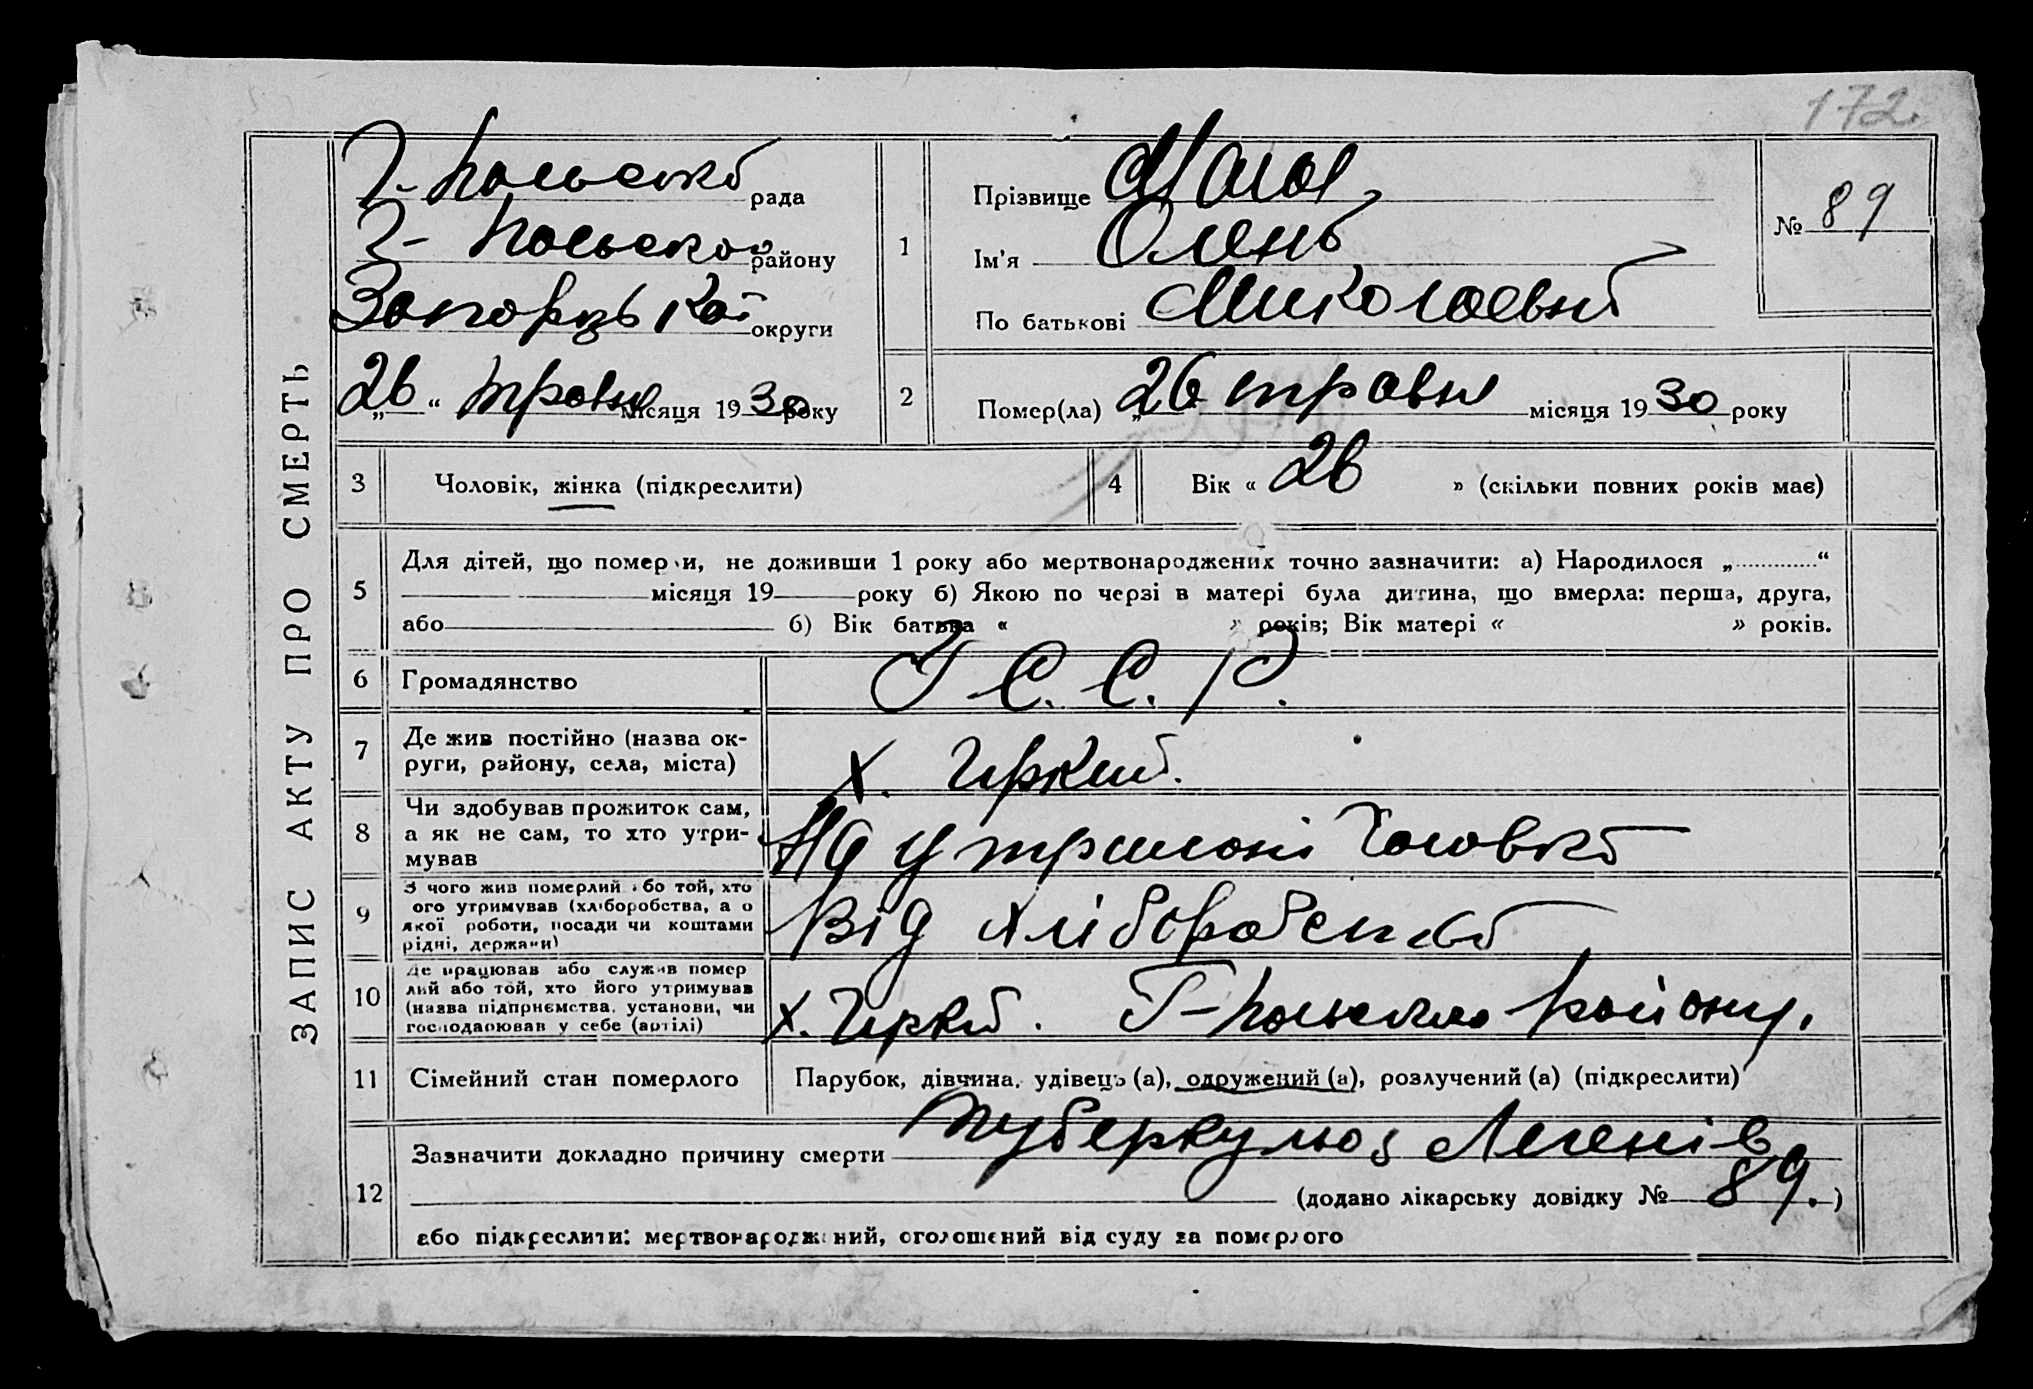 172.
ЗАПИС АКТУ ПРО СМЕРТЬ
Г-Польська рада
Г-Польсько района району
Запорізької округи
„26“ травня місяця 1930 року
1
Прізвище
Ім'я Олена
По батькові Миколаевна
№ 89
2
Помер(ла) „26 травня місяця 1930 року
3
Чоловік, жінка (підкреслити)
4
Вік « 26 » (скільки повних років має)
5
Для дітей, що померли, не доживши 1 року або мертвонароджених точно зазначити: а) Народилося „ “
місяця 19 року б) Якою по черзі в матері була дитина, що вмерла: перша, друга,
або б) Вік батька « » років; Вік матері « » років.
6
Громадянство
У С. С. Р.
7
Де жив постійно (назва ок-
руги, району, села, міста)
х.
8
Чи здобував прожиток сам,
а як не сам, то хто утри-
мував
На утримані Чоловка
9
З чого жив померлий або той, хто
його утримував (хліборобства, а о
якої роботи, посади чи коштами
рідні, держави)
Від хліборобства
10
Де працював або служив помер
лий або той, хто його утримував
(назва підприємства, установи, чи
господарював у себе (артілі)
х. Г-Польского району.
11
Сімейний стан померлого
Парубок, дівчина, удівець (а), одружений (а), розлучений (а) (підкреслити)
12
Зазначити докладно причину смерти туберкульоз Легенів
(додано лікарську довідку № 89. )
або підкреслити: мертвонароджений, оголошений від суду за померлого